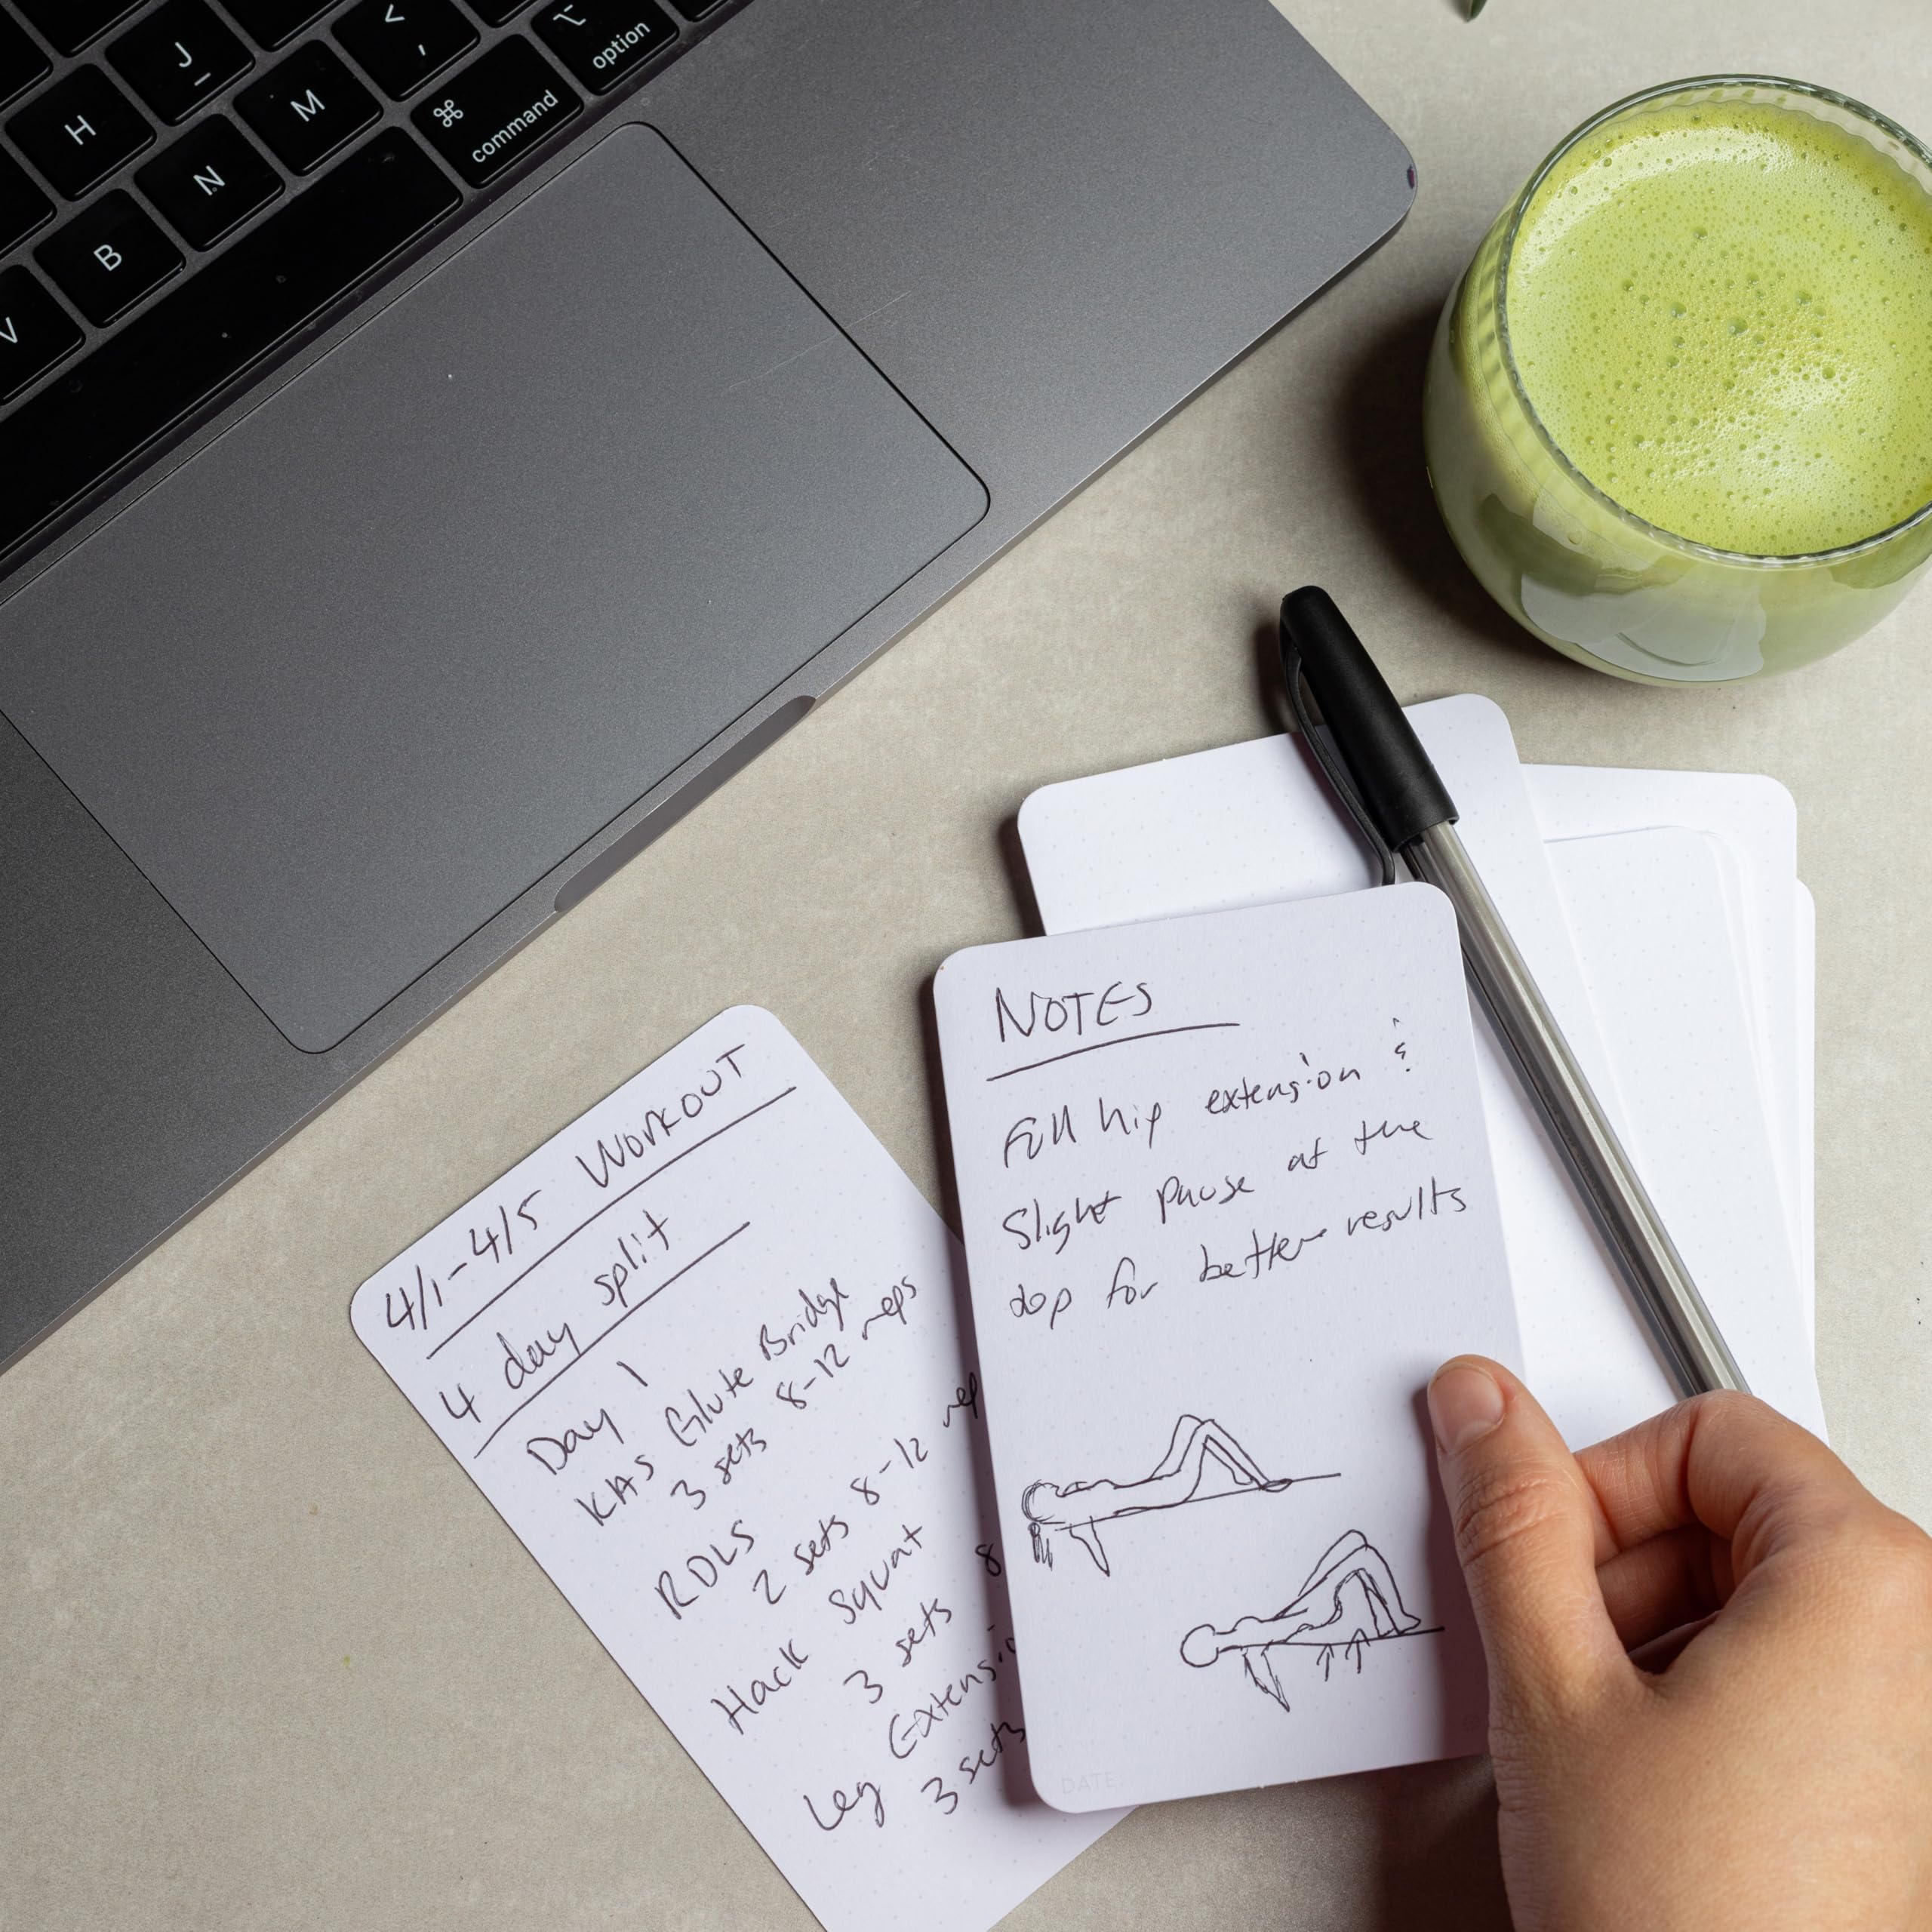 J
<
,
option
H
M
⌘
command
N
B
V
4/1-4/5 WORKOUT
4 day split
Day 1
KAS Glute Bridge
3 sets 8-12 reps
RDLS
2 sets 8-12 rep
Hack Squat
3 sets 8
Leg Extensio
3 sets
NOTES
Full hip extension &
Slight pause at the
top for better results
DATE: